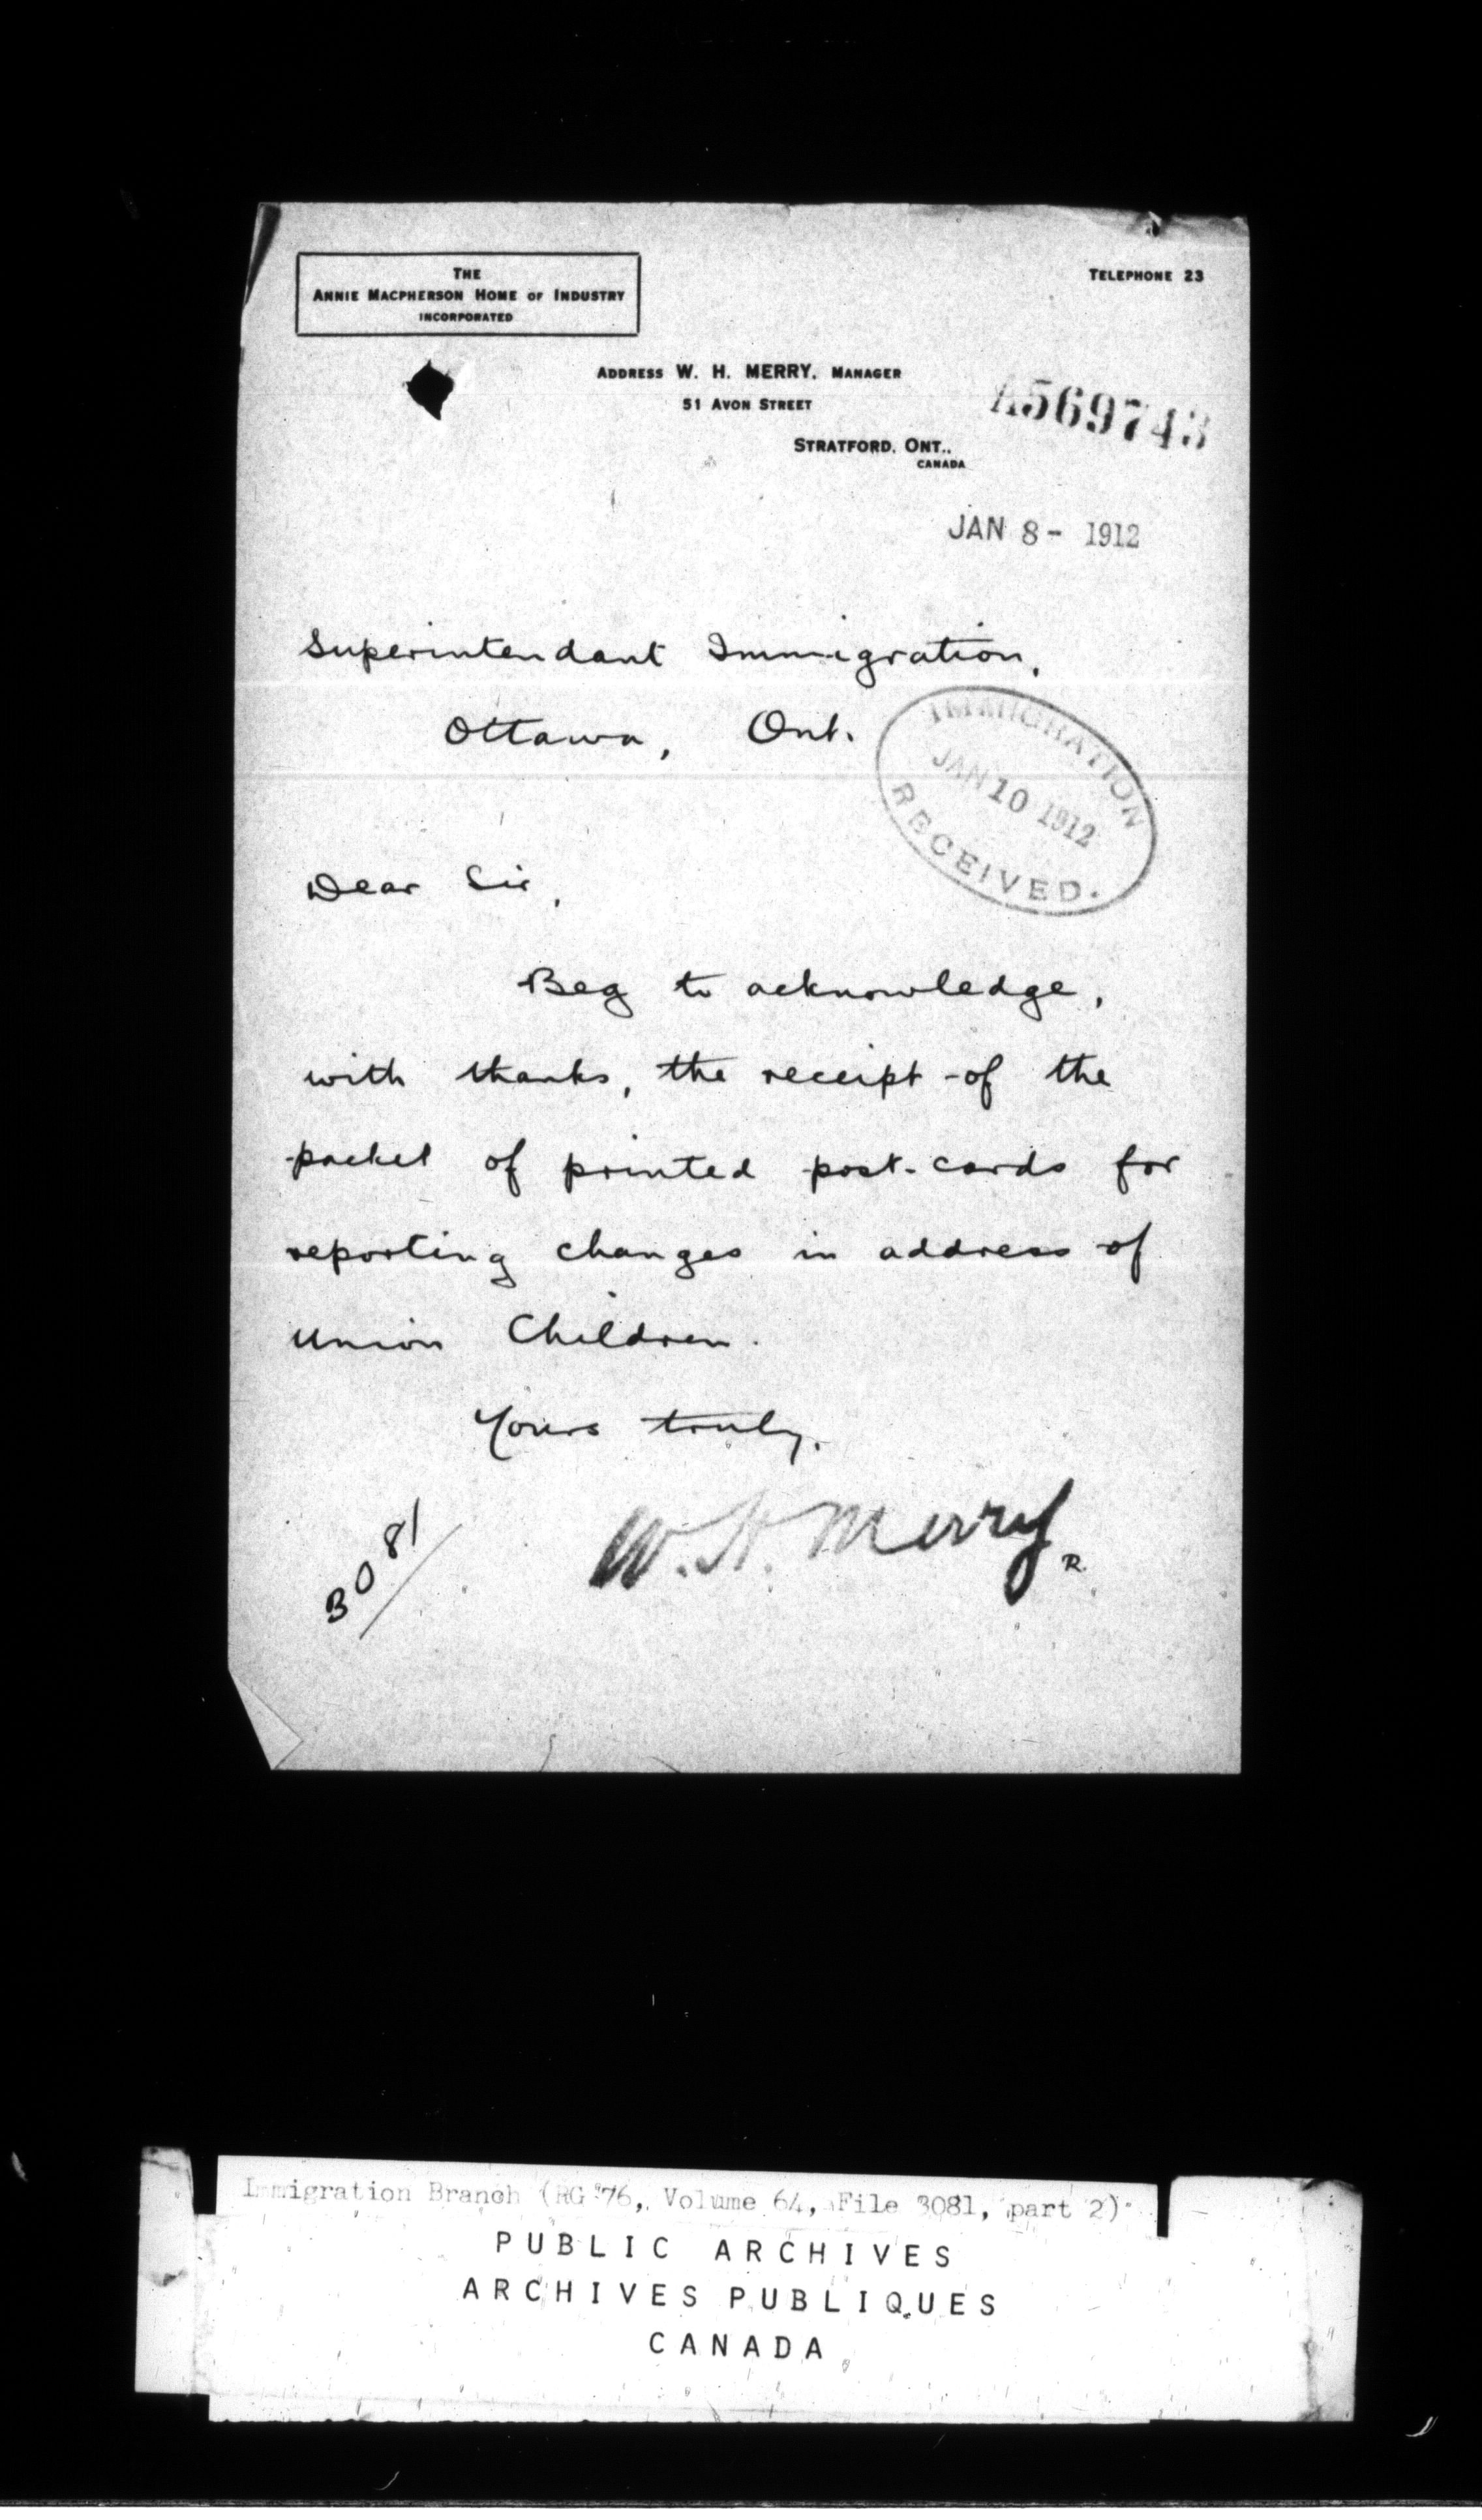 THE
ANNIE MACPHERSON HOME OF INDUSTRY
INCORPORATED
TELEPHONE 23
ADDRESS W. H. MERRY, MANAGER
51 AVON STREET
A569743
STRATFORD, ONT.,
CANADA
JAN 8 - 1912
Superintendant Immigration,
Ottawa, Ont.
IMMIGRATION
JAN 10 1912
RECEIVED.
Dear Sir,
Beg to acknowledge,
with thanks, the receipt of the
packet of printed post-cards for
reporting changes in address of
Union Children.
Yours truly,
W. H. Merry
R.
3081
Immigration Branch (RG 76, Volume 64, File 3081, part 2)
PUBLIC ARCHIVES
ARCHIVES PUBLIQUES
CANADA